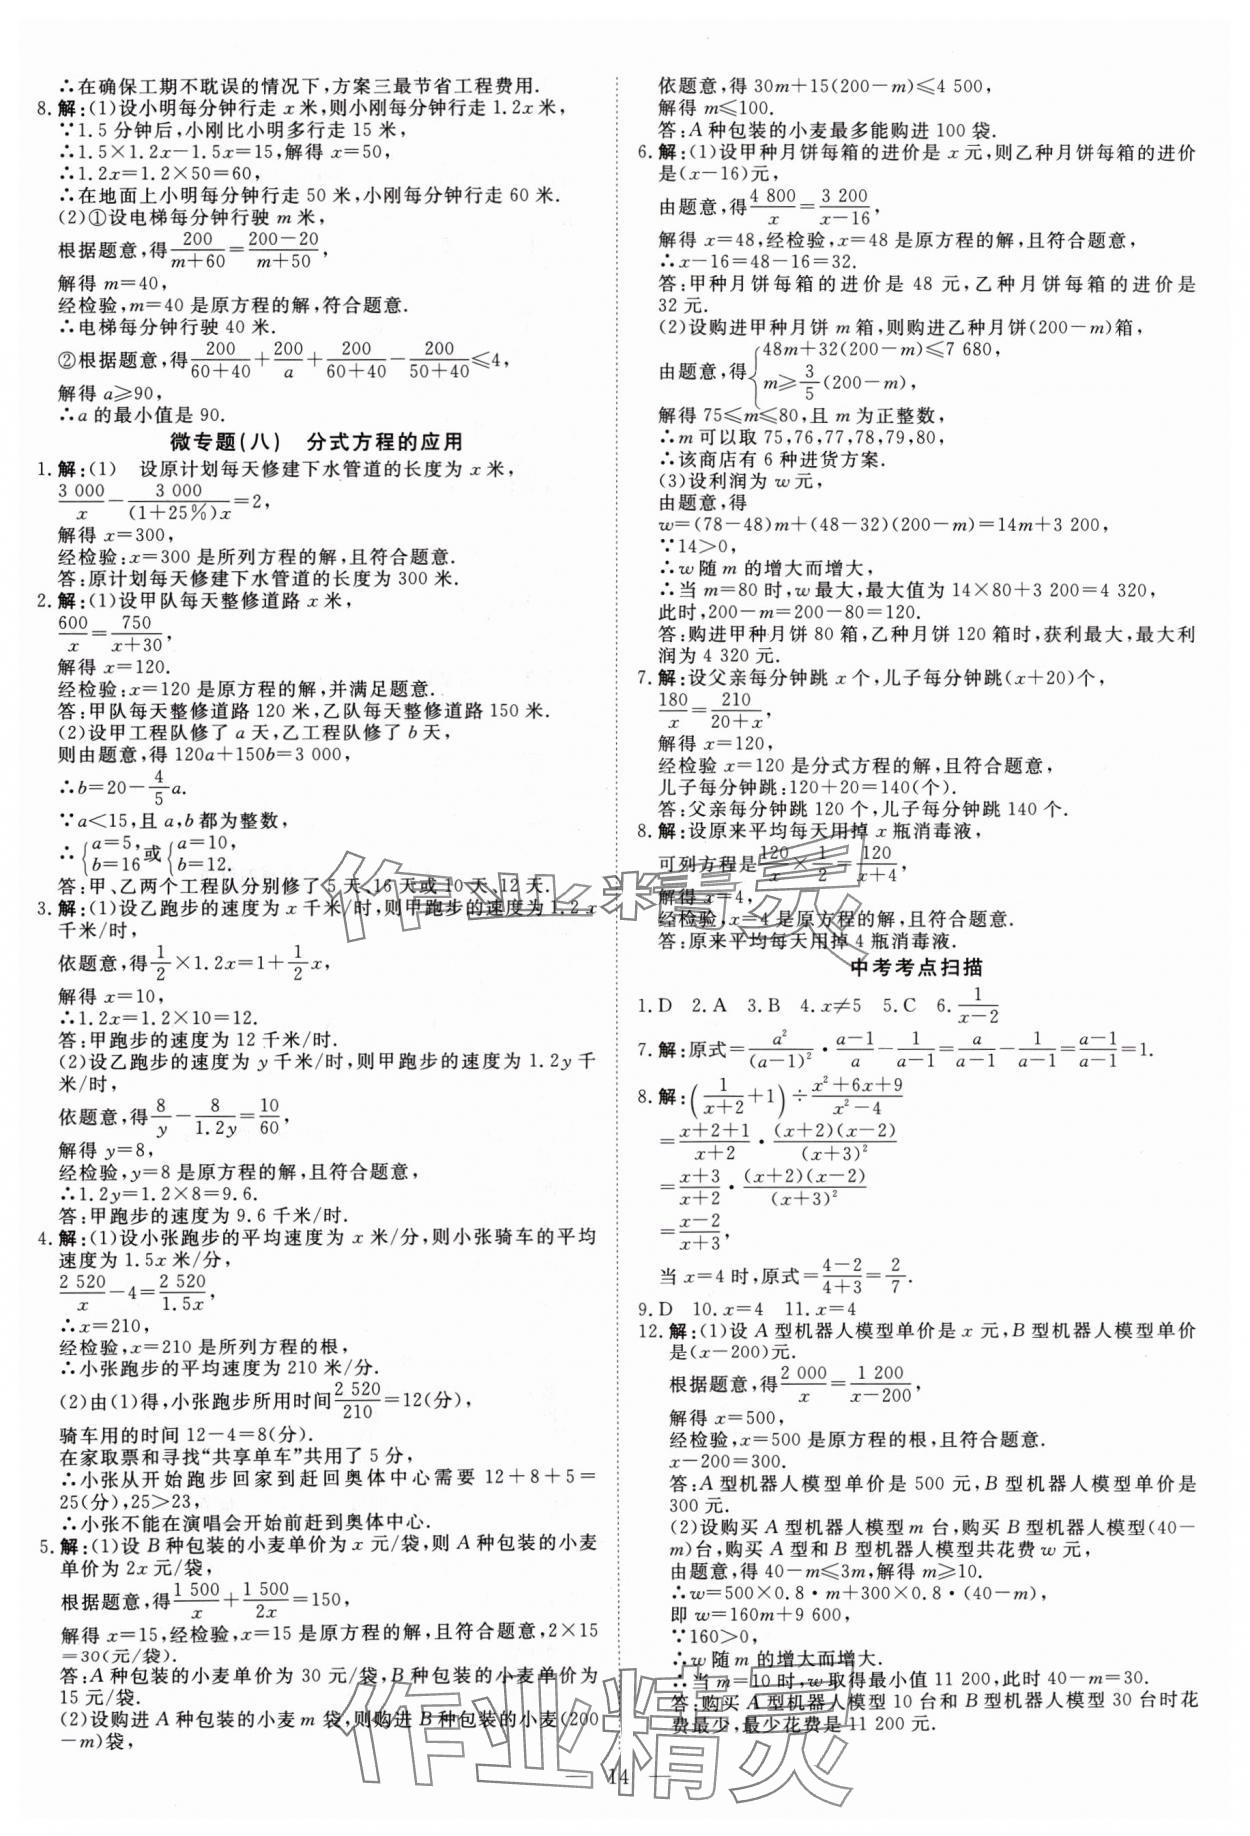 ∴在确保工期不耽误的情况下,方案三最节省工程费用.
8.解:(1)设小明每分钟行走 x 米,则小刚每分钟行走 1.2x 米,
∵1.5 分钟后,小刚比小明多行走 15 米,
∴1.5×1.2x-1.5x=15,解得 x=50,
∴1.2x=1.2×50=60,
∴在地面上小明每分钟行走 50 米,小刚每分钟行走 60 米.
(2)①设电梯每分钟行驶 m 米,
根据题意,得200/(m+60)=(200-20)/(m+50),
解得 m=40,
经检验,m=40 是原方程的解,符合题意.
∴电梯每分钟行驶 40 米.
②根据题意,得200/(60+40)+200/a+200/(60+40)-200/(50+40)≤4,
解得 a≥90,
∴a 的最小值是 90.
微专题(八) 分式方程的应用
1.解:(1) 设原计划每天修建下水管道的长度为 x 米,
3 000/x-3 000/((1+25%)x)=2,
解得 x=300,
经检验:x=300 是所列方程的解,且符合题意.
答:原计划每天修建下水管道的长度为 300 米.
2.解:(1)设甲队每天整修道路 x 米,
600/x=750/(x+30),
解得 x=120.
经检验:x=120 是原方程的解,并满足题意.
答:甲队每天整修道路 120 米,乙队每天整修道路 150 米.
(2)设甲工程队修了 a 天,乙工程队修了 b 天,
则由题意,得 120a+150b=3 000,
∴b=20-4/5 a.
∵a<15,且 a,b 都为整数,
∴{a=5, b=16 或{a=10, b=12.
答:甲、乙两个工程队分别修了 5 天、16 天或 10 天、12 天.
3.解:(1)设乙跑步的速度为 x 千米/时,则甲跑步的速度为 1.2x
千米/时,
依题意,得1/2×1.2x=1+1/2 x,
解得 x=10,
∴1.2x=1.2×10=12.
答:甲跑步的速度为 12 千米/时.
(2)设乙跑步的速度为 y 千米/时,则甲跑步的速度为 1.2y 千
米/时,
依题意,得8/y-8/1.2y=10/60,
解得 y=8,
经检验,y=8 是原方程的解,且符合题意,
∴1.2y=1.2×8=9.6.
答:甲跑步的速度为 9.6 千米/时.
4.解:(1)设小张跑步的平均速度为 x 米/分,则小张骑车的平均
速度为 1.5x 米/分,
2 520/x-4=2 520/1.5x,
∴x=210,
经检验,x=210 是所列方程的根,
∴小张跑步的平均速度为 210 米/分.
(2)由(1)得,小张跑步所用时间2 520/210=12(分),
骑车用的时间 12-4=8(分).
在家取票和寻找“共享单车”共用了 5 分,
∴小张从开始跑步回家到赶回奥体中心需要 12+8+5=
25(分),25>23,
∴小张不能在演唱会开始前赶到奥体中心.
5.解:(1)设 B 种包装的小麦单价为 x 元/袋,则 A 种包装的小麦
单价为 2x 元/袋,
根据题意,得1 500/x+1 500/2x=150,
解得 x=15,经检验,x=15 是原方程的解,且符合题意,2×15
=30(元/袋).
答:A 种包装的小麦单价为 30 元/袋,B 种包装的小麦单价为
15 元/袋.
(2)设购进 A 种包装的小麦 m 袋,则购进 B 种包装的小麦(200
-m)袋,
依题意,得 30m+15(200-m)≤4 500,
解得 m≤100.
答:A 种包装的小麦最多能购进 100 袋.
6.解:(1)设甲种月饼每箱的进价是 x 元,则乙种月饼每箱的进价
是(x-16)元,
由题意,得4 800/x=3 200/(x-16),
解得 x=48,经检验,x=48 是原方程的解,且符合题意,
∴x-16=48-16=32.
答:甲种月饼每箱的进价是 48 元,乙种月饼每箱的进价是
32 元.
(2)设购进甲种月饼 m 箱,则购进乙种月饼(200-m)箱,
由题意,得{48m+32(200-m)≤7 680, m≥3/5(200-m),
解得 75≤m≤80,且 m 为正整数,
∴m 可以取 75,76,77,78,79,80,
∴该商店有 6 种进货方案.
(3)设利润为 w 元,
由题意,得
w=(78-48)m+(48-32)(200-m)=14m+3 200,
∵14>0,
∴w 随 m 的增大而增大,
∴当 m=80 时,w最大,最大值为 14×80+3 200=4 320,
此时,200-m=200-80=120.
答:购进甲种月饼 80 箱,乙种月饼 120 箱时,获利最大,最大利
润为 4 320 元.
7.解:设父亲每分钟跳 x 个,儿子每分钟跳(x+20)个,
180/x=210/(20+x),
解得 x=120,
经检验 x=120 是分式方程的解,且符合题意,
儿子每分钟跳:120+20=140(个).
答:父亲每分钟跳 120 个,儿子每分钟跳 140 个.
8.解:设原来平均每天用掉 x 瓶消毒液,
可列方程是120/x×1/2=120/(x+4),
解得 x=4,
经检验,x=4 是原方程的解,且符合题意.
答:原来平均每天用掉 4 瓶消毒液.
中考考点扫描
1.D 2.A 3.B 4.x≠5 5.C 6.1/(x-2)
7.解:原式=a²/(a-1)²·(a-1)/a-1/(a-1)=a/(a-1)-1/(a-1)=(a-1)/(a-1)=1.
8.解:(1/(x+2)+1)÷(x²+6x+9)/(x²-4)
=(x+2+1)/(x+2)·(x+2)(x-2)/(x+3)²
=(x+3)/(x+2)·(x+2)(x-2)/(x+3)²
=(x-2)/(x+3),
当 x=4 时,原式=(4-2)/(4+3)=2/7.
9.D 10.x=4 11.x=4
12.解:(1)设 A 型机器人模型单价是 x 元,B 型机器人模型单价
是(x-200)元.
根据题意,得2 000/x=1 200/(x-200),
解得 x=500,
经检验,x=500 是原方程的根,且符合题意.
x-200=300.
答:A 型机器人模型单价是 500 元,B 型机器人模型单价是
300 元.
(2)设购买 A 型机器人模型 m 台,购买 B 型机器人模型(40-
m)台,购买 A 型和 B 型机器人模型共花费 w 元,
由题意,得 40-m≤3m,解得 m≥10.
∴w=500×0.8·m+300×0.8·(40-m),
即 w=160m+9 600,
∵160>0,
∴w 随 m 的增大而增大.
∴当 m=10 时,w取得最小值 11 200,此时 40-m=30.
答:购买 A 型机器人模型 10 台和 B 型机器人模型 30 台时花
费最少,最少花费是 11 200 元.
作业精灵
作业精灵
— 14 —